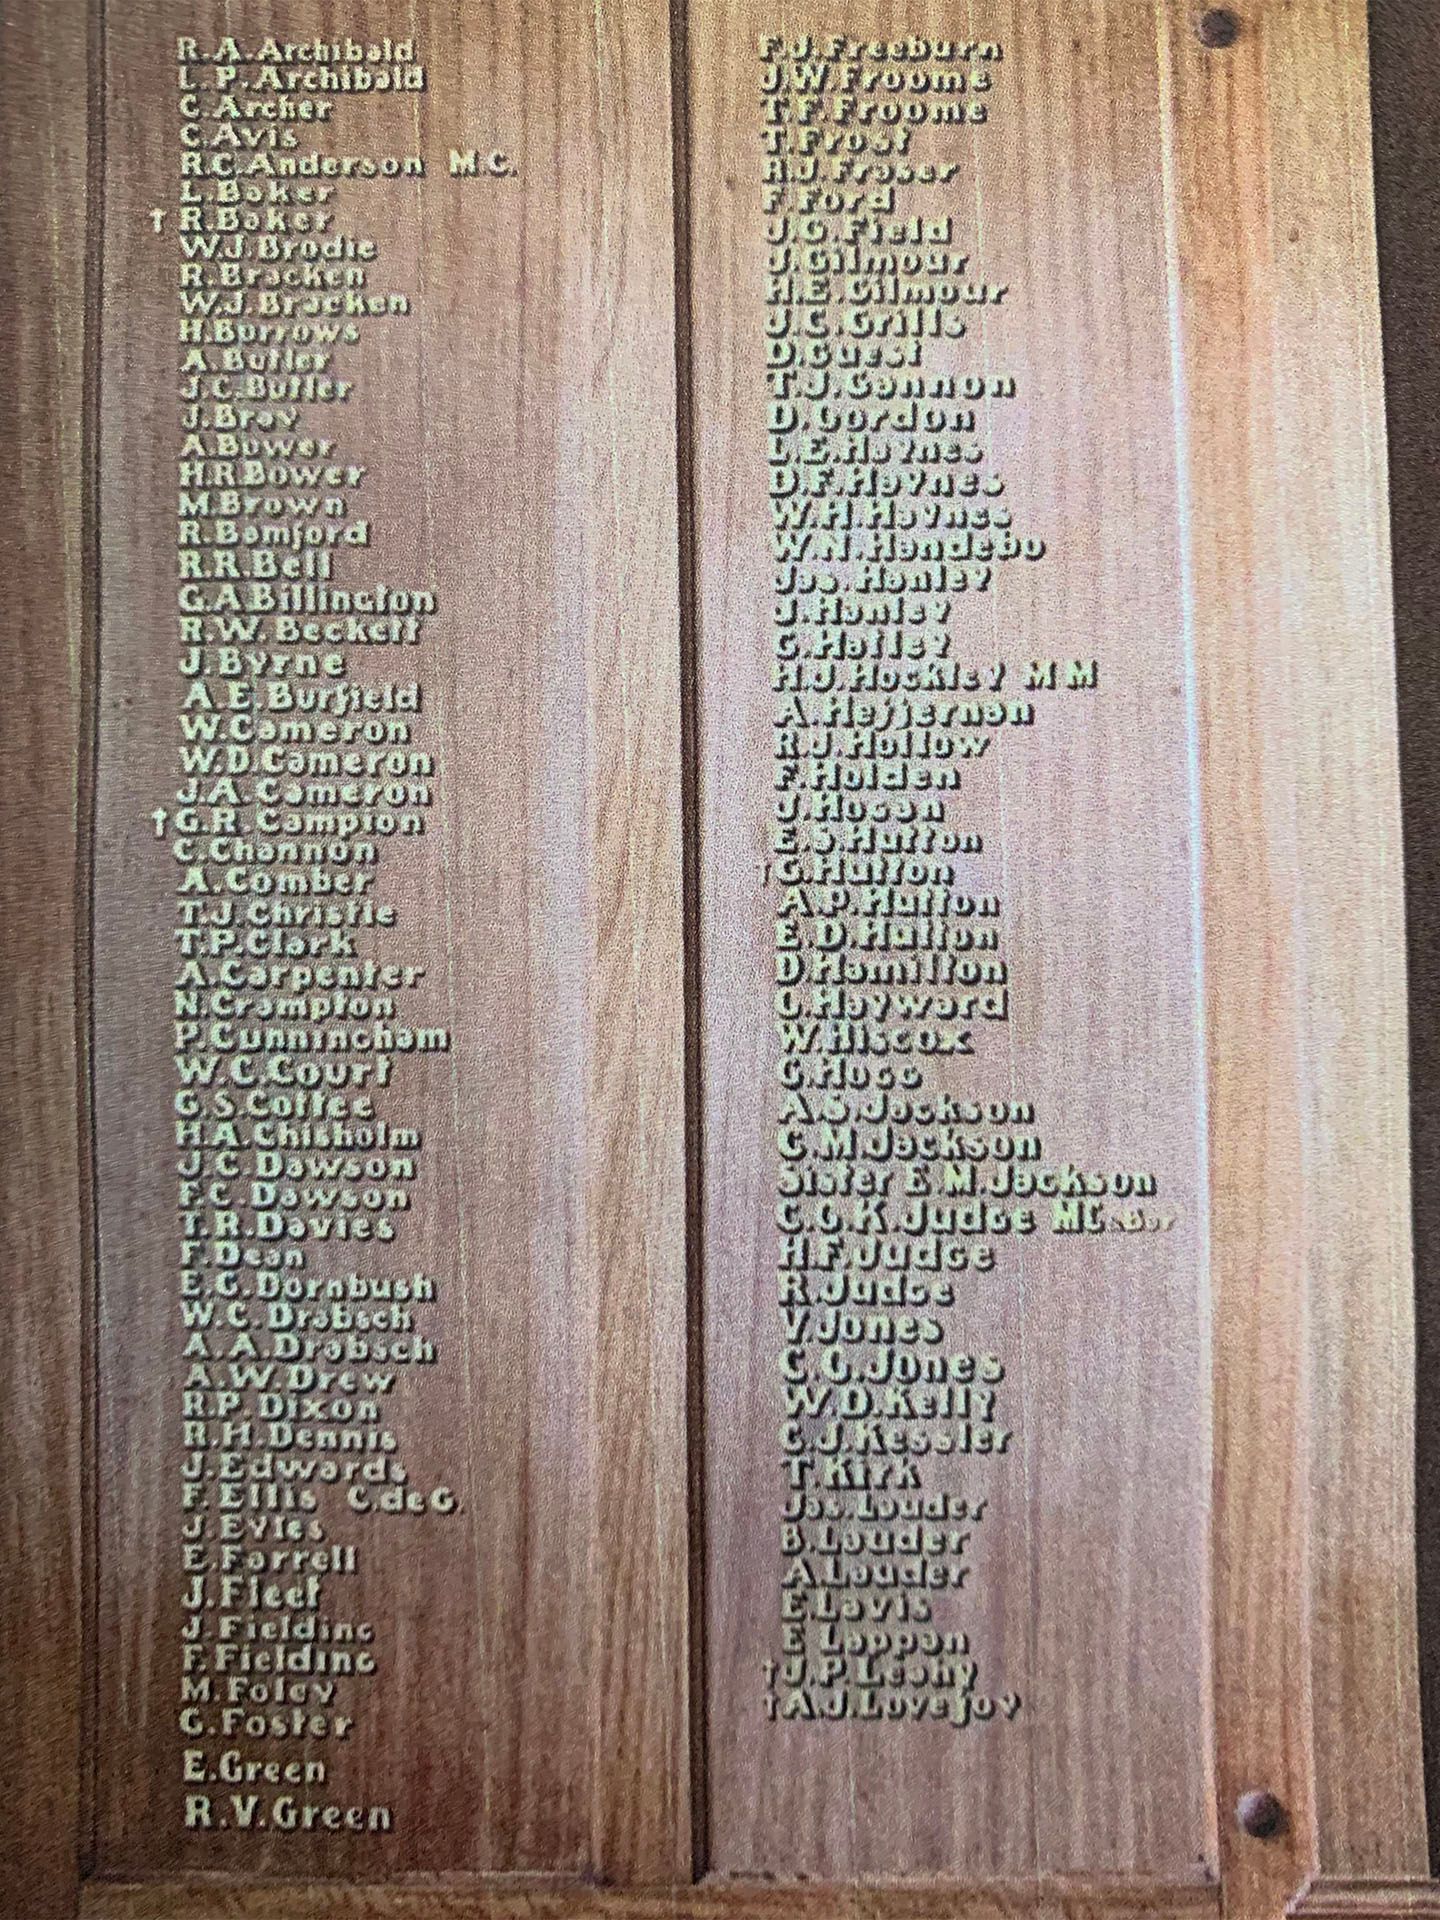 R.A.Archibald
L.P.Archibald
C.Archer
C.Avis
R.C.Anderson M.C.
L.Baker
† R.Baker
W.J.Brodie
R.Bracken
W.J.Bracken
H.Burrows
A.Butler
J.C.Butler
J.Bray
A.Bower
H.R.Bower
M.Brown
R.Bamford
R.R.Bell
G.A.Billington
R.W.Beckett
J.Byrne
A.E.Burfield
W.Cameron
W.D.Cameron
J.A.Cameron
†G.R.Campton
C.Channon
A.Comber
T.J.Christie
T.P.Clark
A.Carpenter
N.Crampton
P.Cunningham
W.C.Court
G.S.Coffee
H.A.Chisholm
J.C.Dawson
F.C.Dawson
T.R.Davies
F.Dean
E.G.Dornbush
W.C.Drabsch
A.A.Drabsch
A.W.Drew
R.P.Dixon
R.H.Dennis
J.Edwards
F.Ellis C.deG.
J.Eyles
E.Farrell
J.Fleet
J.Fielding
F.Fielding
M.Foley
G.Foster
E.Green
R.V.Green
F.J.Freeburn
J.W.Froome
T.F.Froome
T.Frost
R.J.Fraser
F.Ford
J.G.Field
J.Gilmour
H.E.Gilmour
J.C.Grills
D.Guest
T.J.Gannon
D.Gordon
L.E.Haynes
D.F.Haynes
W.H.Haynes
W.N.Handebo
Jas.Hanley
J.Hanley
G.Hatley
H.J.Hockley M M
A.Heffernan
R.J.Hollow
F.Holden
J.Hogan
E.S.Hutton
†G.Hutton
A.P.Hutton
E.D.Hutton
D.Hamilton
C.Hayward
W.Hiscox
G.Hugo
A.S.Jackson
C.M.Jackson
Sister E.M.Jackson
C.G.K.Judge MC.&Bar
H.F.Judge
R.Judge
V.Jones
C.G.Jones
W.D.Kelly
C.J.Kessler
T.Kirk
Jas.Lauder
B.Lauder
A.Lauder
E.Lavis
E Lappan
†J.P.Leahy
†A.J.Lovejoy